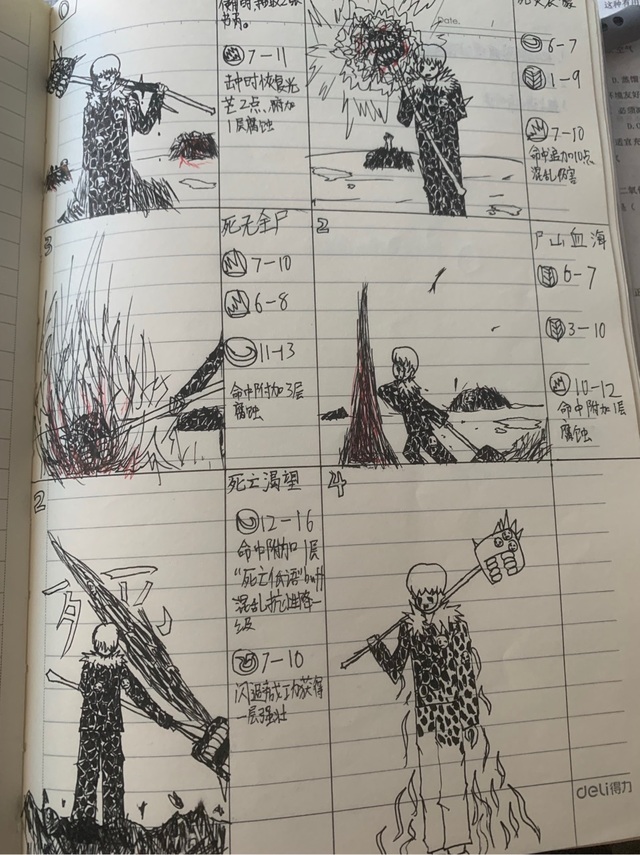 0
书界。
7-11
击中时恢复光
芒2点，附加
1层腐蚀
Date.
6-7
1-9
7-10
命中追加10点
混乱伤害
3
死无全尸
7-10
6-8
11-13
命中附加3层
腐蚀
2
尸山血海
6-7
3-10
10-12
命中附加1层
腐蚀
2
死亡
死亡渴望
12-16
命中附加1层
"死亡低语"buff
混乱抗性降一
级
7-10
闪避成功获得
一层强壮
4
deli得力